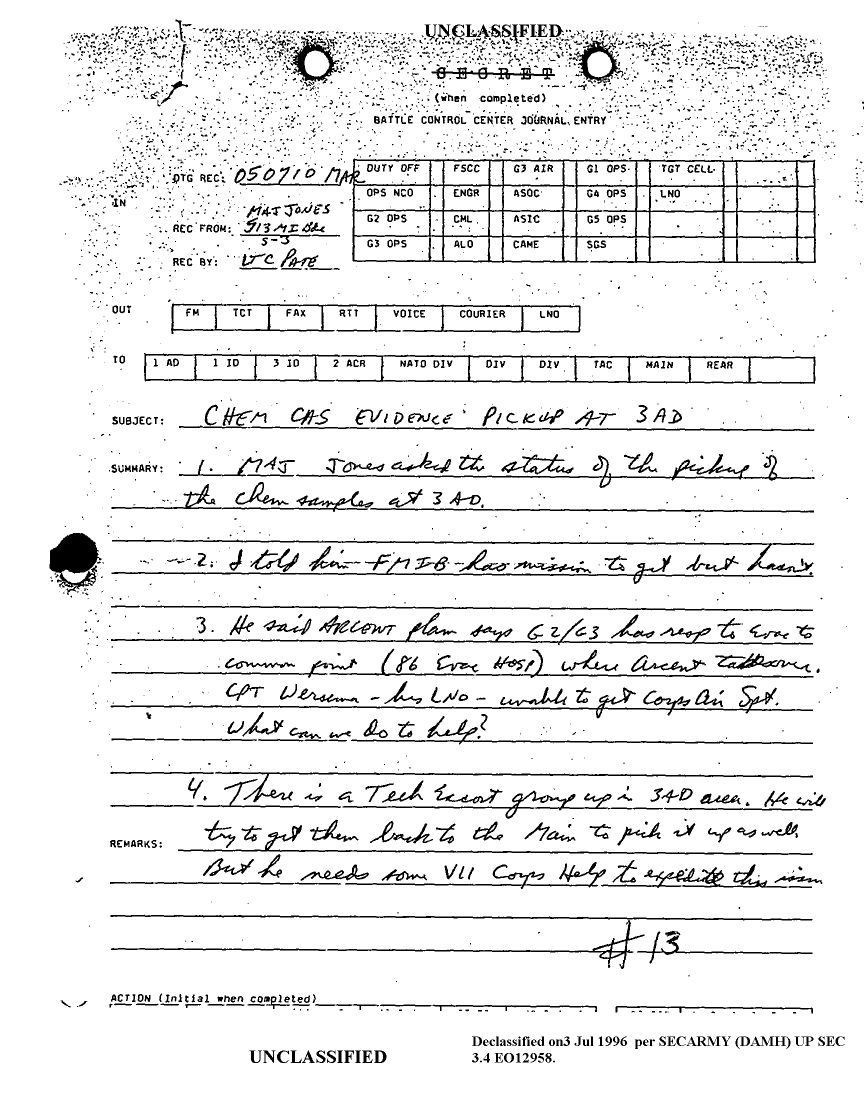 UNCLASSIFIED
SECRET
(when completed)
BATTLE CONTROL CENTER JOURNAL ENTRY
IN
DTG REC: 050710 MAR
REC FROM: MAJ JONES
513 MI Bde
S-3
REC BY: LTC PATE
DUTY OFF FSCC G3 AIR G1 OPS TGT CELL
OPS NCO ENGR ASOC G4 OPS LNO
G2 OPS CML ASIC G5 OPS
G3 OPS ALO CAME SGS
OUT FM TCT FAX RTT VOICE COURIER LNO
TO 1 AD 1 ID 3 ID 2 ACR NATO DIV DIV DIV TAC MAIN REAR
SUBJECT: CHEM CAS EVIDENCE PICKUP AT 3AD
SUMMARY: 1. MAJ Jones asked the status of the pickup of
the chem samples at 3AD.
2. I told him FMIB has mission to get but hasn't.
3. He said ARCENT plan says G2/G3 has resp to Evac to
common point (86 Evac Hosp) where Arcent takes over.
CPT Wersema - his LNO - unable to get Corps Air Spt.
What can we do to help?
4. There is a Tech Escort group up in 3AD area. He will
try to get them back to the Main to pick it up as well.
REMARKS:
But he needs some VII Corps Help to expedite this issue
#13
ACTION (Initial when completed)
UNCLASSIFIED
Declassified on3 Jul 1996 per SECARMY (DAMH) UP SEC
3.4 EO12958.